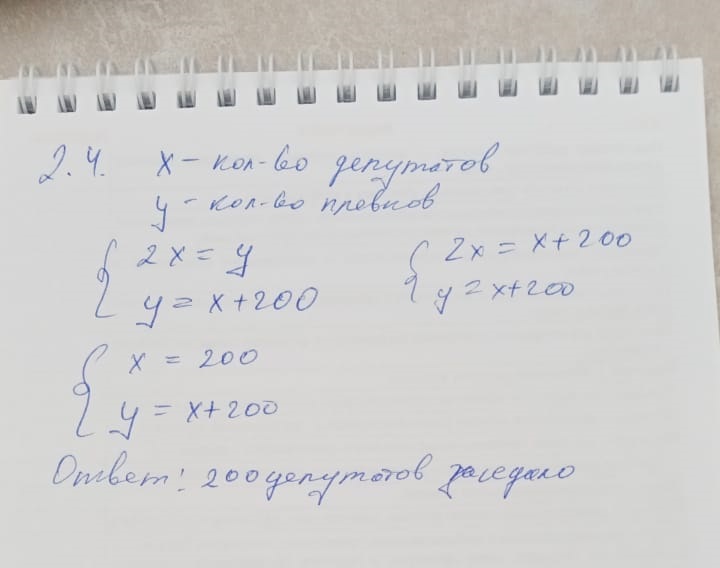 2.4. x - кол-во депутатов
y - кол-во плевков
{ 2x = y
y = x+200
{ 2x = x+200
y = x+200
{ x = 200
y = x+200
Ответ: 200 депутатов заседало